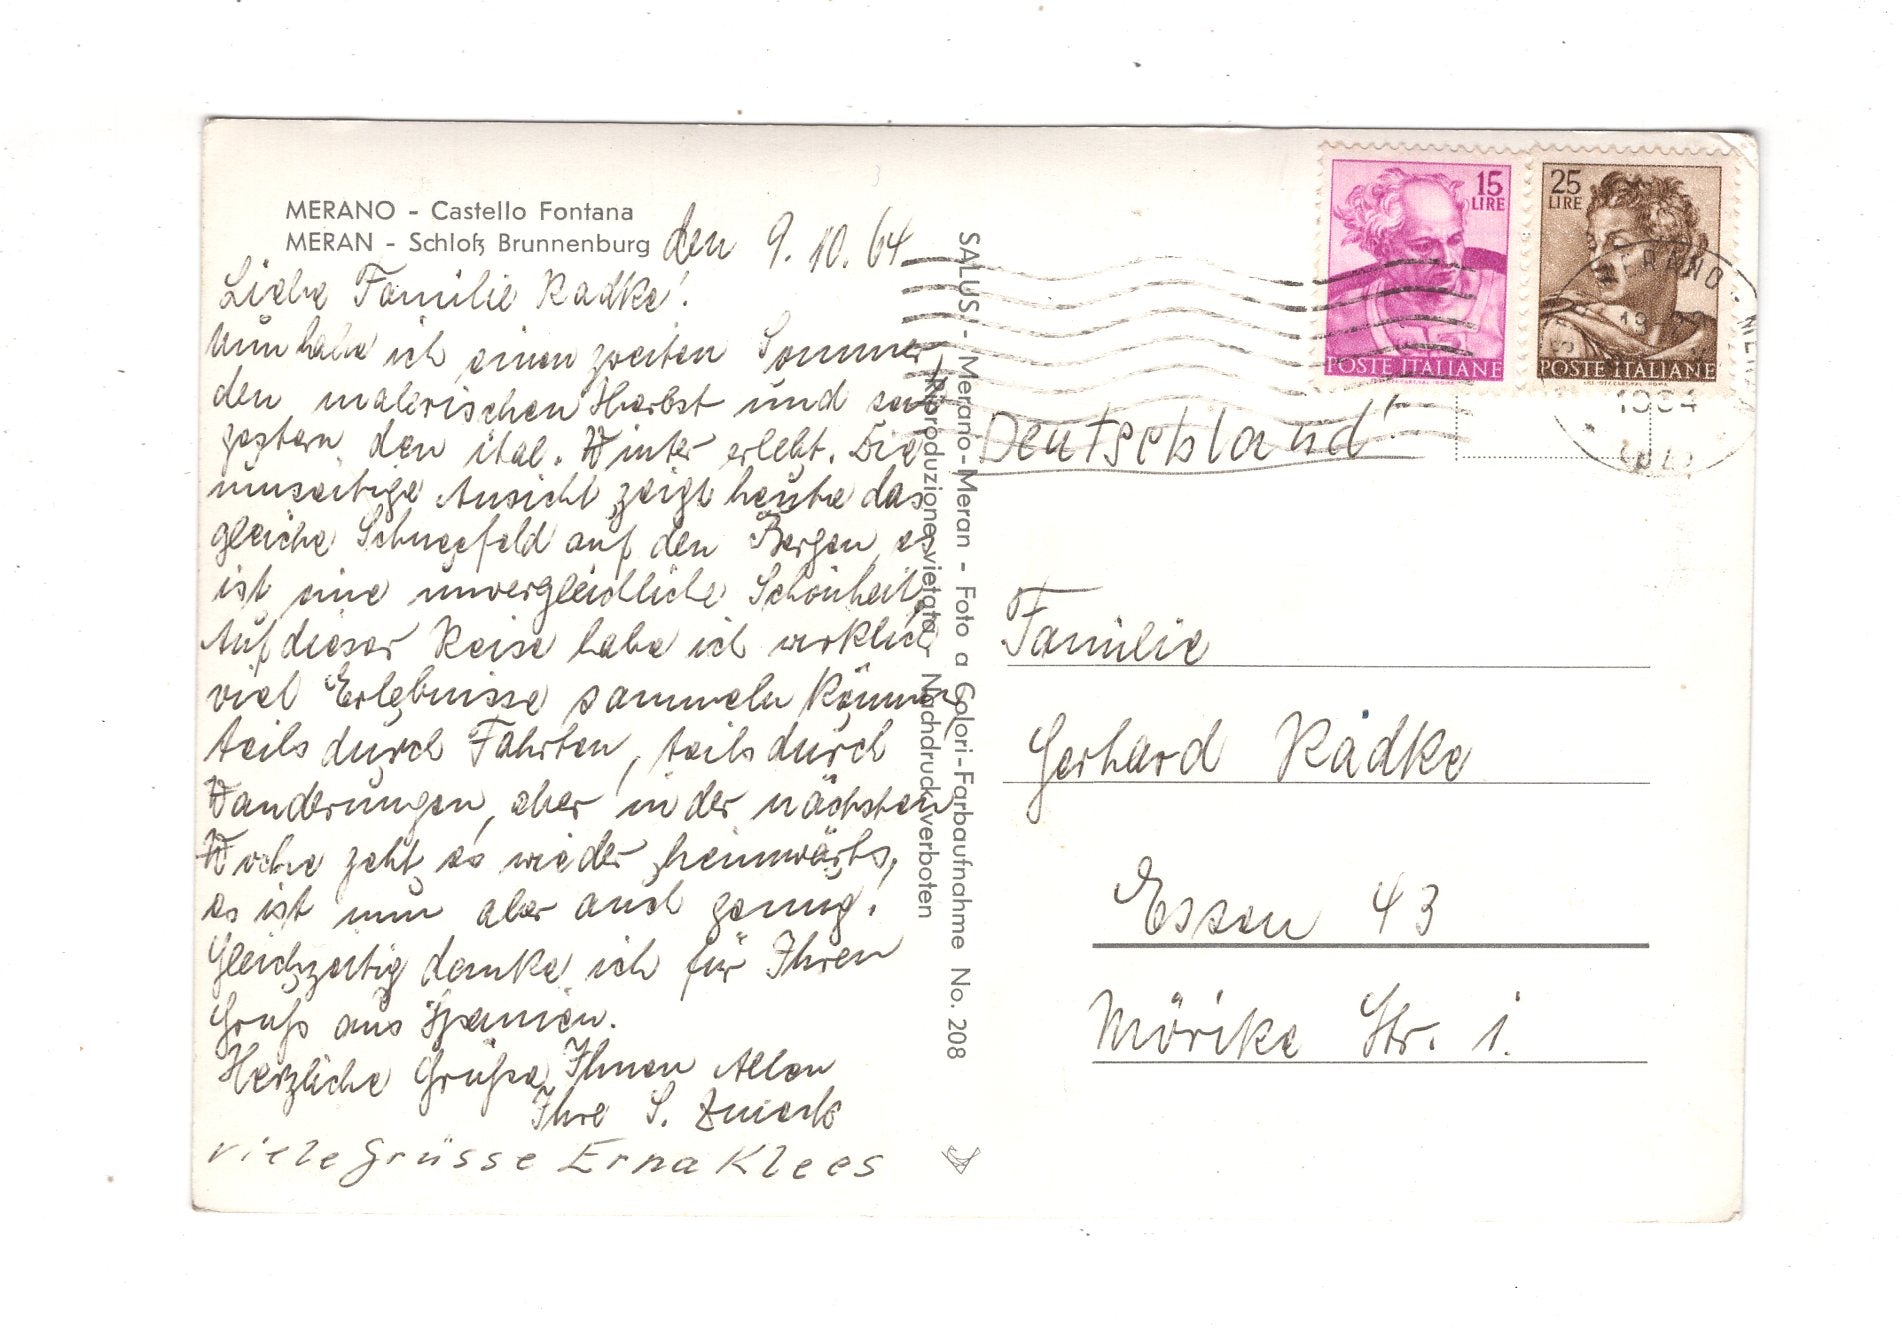 MERANO - Castello Fontana
MERAN - Schloß Brunnenburg
den 9.10.64
Liebe Familie Radke!
Nun habe ich einen zweiten Sommer,
den malerischen Herbst und seit
gestern den ital. Winter erlebt. Die
umseitige Ansicht zeigt heute das
gleiche Schneefeld auf den Bergen, es
ist eine unvergleichliche Schönheit.
Auf dieser Reise habe ich wirklich
viel Erlebnisse sammeln können
teils durch Fahrten, teils durch
Wanderungen, aber in der nächsten
Woche geht es wieder heimwärts,
es ist nun aber auch genug!
Gleichzeitig danke ich für Ihren
Gruß aus Spanien.
Herzliche Grüße Ihnen Allen
Ihre S.
viele Grüsse Erna Klees
SALUS - Merano-Meran - Foto a Colori-Farbaufnahme No. 208
Riproduzione vietata - Nachdruck verboten
15 LIRE
POSTE ITALIANE
25 LIRE
POSTE ITALIANE
Deutschland!
Familie
Gerhard Radke
Essen 43
Mörike Str. 1.